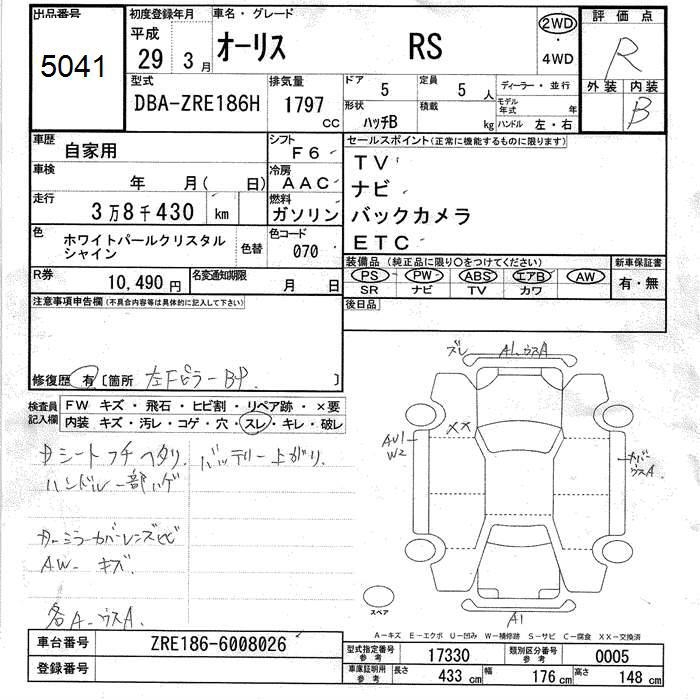 出品番号
5041
初度登録年月
平成
29 3月
車名・グレード
オーリス RS
2WD
・
4WD
評価点
R
外装 内装
B
型式
DBA-ZRE186H
排気量
1797
CC
ドア
5
定員
5 人
形状
ハッチB
積載
kg
ディーラー・並行
モデル
年式 年
ハンドル 左・右
車歴
自家用
シフト
F6
車検
年 月( 日)
冷房
AAC
走行
3万8千430 km
燃料
ガソリン
色
ホワイトパールクリスタル
シャイン
色替
色コード
070
R券
10,490円
名変通知期限
月 日
セールスポイント(正常に機能するものに限ります)
TV
ナビ
バックカメラ
ETC
装備品 (純正品に限り○をつけてください)
PS PW ABS エアB AW
SR ナビ TV カワ
新車保証書
有・無
後日品
注意事項申告欄(不具合内容等は具体的に記入して下さい)
修復歴 有 [箇所 左Fピラー ]
検査員
記入欄
FW キズ・飛石・ヒビ割・リペア跡・×要
内装 キズ・汚レ・コゲ・穴・スレ・キレ・破レ
シートフチヘタリ バッテリー上がり
ハンドル一部ハゲ
ミラーカバーレンズヒビ
AW- キズ
各A-ウスA
ズレ A1.ウスA
XX
AU1
W2
カバー
ウスA
A1
スペア
A-キズ E-エクボ U-凹み W-補修跡 S-サビ C-腐食 XX-交換済
車台番号 ZRE186-6008026
登録番号
型式指定番号
参考
17330
類別区分番号
参考
0005
車庫証明用
参考
長さ 433 cm 幅 176 cm 高さ 148 cm